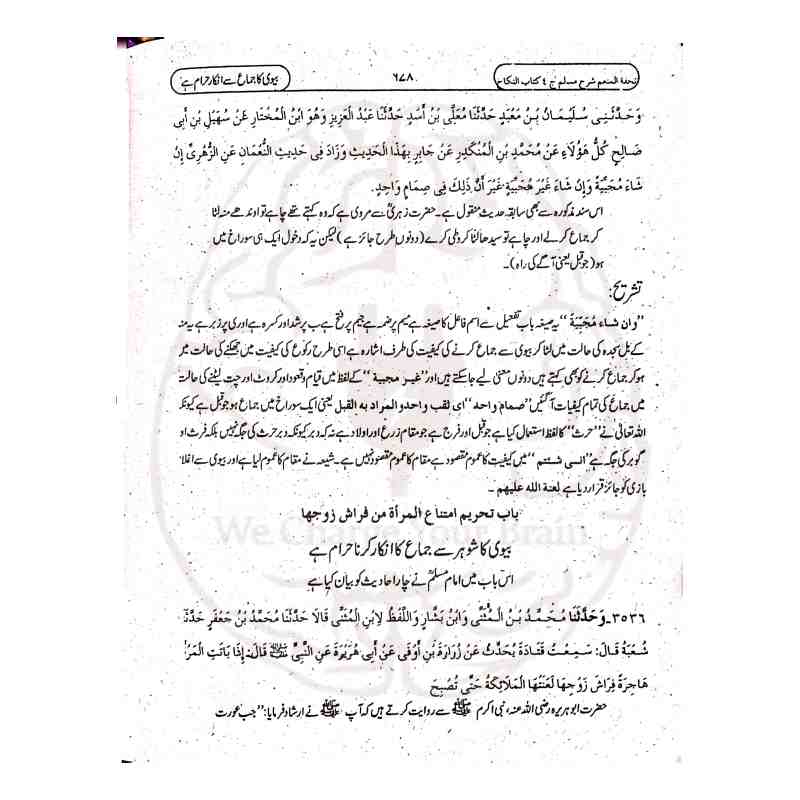 تحفة المنعم شرح مسلم ج ٤ كتاب النكاح
٦٧٨
بیوی کا جماع سے انکار حرام ہے
وَحَدَّثَنِى سُلَيْمَانُ بْنُ مَعْبَدٍ حَدَّثَنَا مُعَلَّى بْنُ أَسَدٍ حَدَّثَنَا عَبْدُ الْعَزِيزِ وَهُوَ ابْنُ الْمُخْتَارِ عَنْ سُهَيْلِ بْنِ أَبِى
صَالِحٍ كُلُّ هَؤُلَاءِ عَنْ مُحَمَّدِ بْنِ الْمُنْكَدِرِ عَنْ جَابِرٍ بِهَذَا الْحَدِيثِ وَزَادَ فِى حَدِيثِ النُّعْمَانِ عَنِ الزُّهْرِىِّ إِنْ
شَاءَ مُجَبِّيَةً وَإِنْ شَاءَ غَيْرَ مُجَبِّيَةٍ غَيْرَ أَنَّ ذَلِكَ فِى صِمَامٍ وَاحِدٍ.
اس سند مذکورہ سے بھی سابقہ حدیث منقول ہے۔ حضرت زہریؒ سے مروی ہے کہ وہ کہتے تھے چاہے تو اوندھے منہ لٹا
کر جماع کر لے اور چاہے تو سیدھا لٹا کر وطی کرے (دونوں طرح جائز ہے) لیکن یہ کہ دخول ایک ہی سوراخ میں
ہو (جو قبل یعنی آگے کی راہ)۔
تشریح:
”وان شاء مُجَبِّيَة“ یہ صیغہ باب تفعیل سے اسم فاعل کا صیغہ ہے میم پر ضمہ ہے جیم پر فتح ہے ب پر شد اور کسرہ ہے اور ی پر زبر ہے یہ منہ
کے بل سجدہ کی حالت میں لٹا کر بیوی سے جماع کرنے کی کیفیت کی طرف اشارہ ہے اسی طرح رکوع کی کیفیت میں جھکنے کی حالت میں
ہو کر جماع کرنے کو بھی کہتے ہیں دونوں معنی لیے جا سکتے ہیں اور ”غیر مجبیة“ کے لفظ میں قیام وقعود اور کروٹ اور چت لیٹنے کی حالت
میں جماع کی تمام کیفیات آگئیں ”صمام واحد“ ای ثقب واحد والمراد به القبل یعنی ایک سوراخ میں جماع ہو جو قبل ہے کیونکہ
اللہ تعالیٰ نے ”حرث“ کا لفظ استعمال کیا ہے جو قبل اور فرج ہے جو مقام زرع اور اولاد ہے نہ کہ دبر کیونکہ دبر حرث کی جگہ نہیں بلکہ فرث او
گوبر کی جگہ ہے ”انی شئتم“ میں کیفیت کا عموم مقصود ہے مقام کا عموم مقصود نہیں ہے۔ شیعہ نے مقام کا عموم لیا ہے اور بیوی سے اغلا
بازی کو جائز قرار دیا ہے لعنة الله عليهم۔
باب تحريم امتناع المرأة من فراش زوجها
We Charge Your Brain
بیوی کا شوہر سے جماع کا انکار کرنا حرام ہے
اس باب میں امام مسلمؒ نے چار احادیث کو بیان کیا ہے
٣٥٣٦۔ وَحَدَّثَنَا مُحَمَّدُ بْنُ الْمُثَنَّى وَابْنُ بَشَّارٍ وَاللَّفْظُ لِابْنِ الْمُثَنَّى قَالَا حَدَّثَنَا مُحَمَّدُ بْنُ جَعْفَرٍ حَدَّثَنَا
شُعْبَةُ قَالَ: سَمِعْتُ قَتَادَةَ يُحَدِّثُ عَنْ زُرَارَةَ بْنِ أَوْفَى عَنْ أَبِى هُرَيْرَةَ عَنِ النَّبِىِّ ﷺ قَالَ: إِذَا بَاتَتِ الْمَرْ
هَاجِرَةً فِرَاشَ زَوْجِهَا لَعَنَتْهَا الْمَلَائِكَةُ حَتَّى تُصْبِحَ
حضرت ابو ہریرہ رضی اللہ عنہ، نبی اکرم ﷺ سے روایت کرتے ہیں کہ آپ ﷺ نے ارشاد فرمایا: ”جب عورت